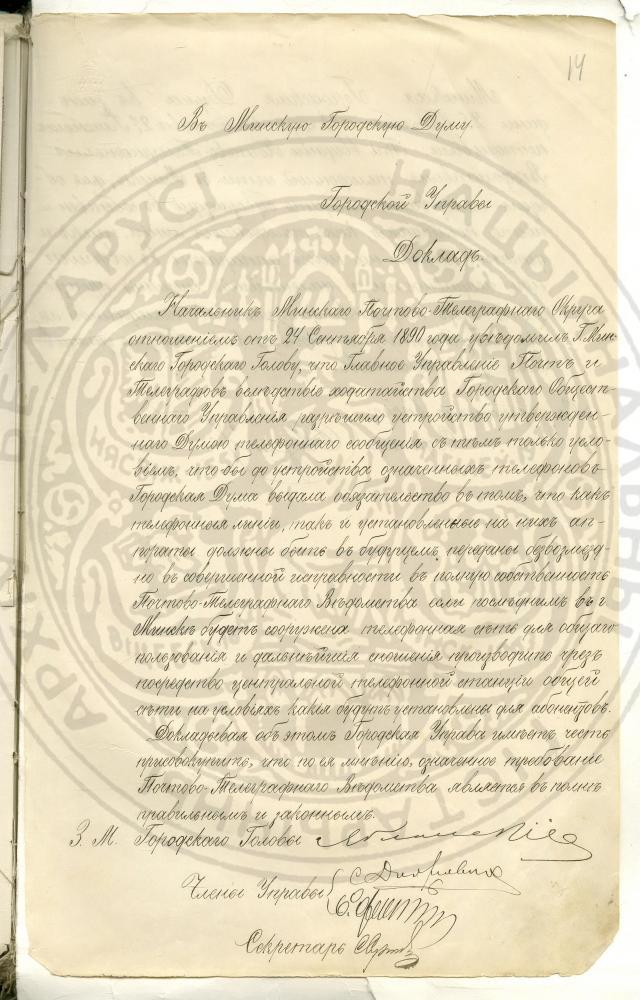 14
Въ Минскую Городскую Думу.
Городской Управы
Докладъ.
Начальникъ Минскаго Почтово-Телеграфнаго Округа
отношеніемъ отъ 24 Сентября 1890 года увѣдомилъ Г. Мин-
скаго Городскаго Голову, что Главное Управленіе Почтъ и
Телеграфовъ вслѣдствіе ходатайства Городскаго Общест-
веннаго Управленія разрѣшило устройство утвержден-
наго Думою телефоннаго сообщенія съ тѣмъ только усло-
віемъ, что бы до устройства означенныхъ телефоновъ
Городская Дума выдала обязательство въ томъ, что какъ
телефонныя линіи, такъ и установленные на нихъ ап-
параты должны быть въ будущемъ переданы безвозмезд-
но въ совершенной исправности въ полную собственность
Почтово-Телеграфнаго Вѣдомства если послѣднимъ въ г.
Минскѣ будетъ сооружена телефонная сѣть для общаго
пользованія и дальнѣйшія сношенія производить чрезъ
посредство центральной телефонной станціи общей
сѣти на условіяхъ какія будутъ установлены для абонентовъ.
Докладывая объ этомъ Городская Управа имѣетъ честь
присовокупить, что по ея мнѣнію, означенное требованіе
Почтово-Телеграфнаго Вѣдомства является вполнѣ
правильнымъ и законнымъ.
З. М. Городскаго Головы
Члены Управы
Секретарь